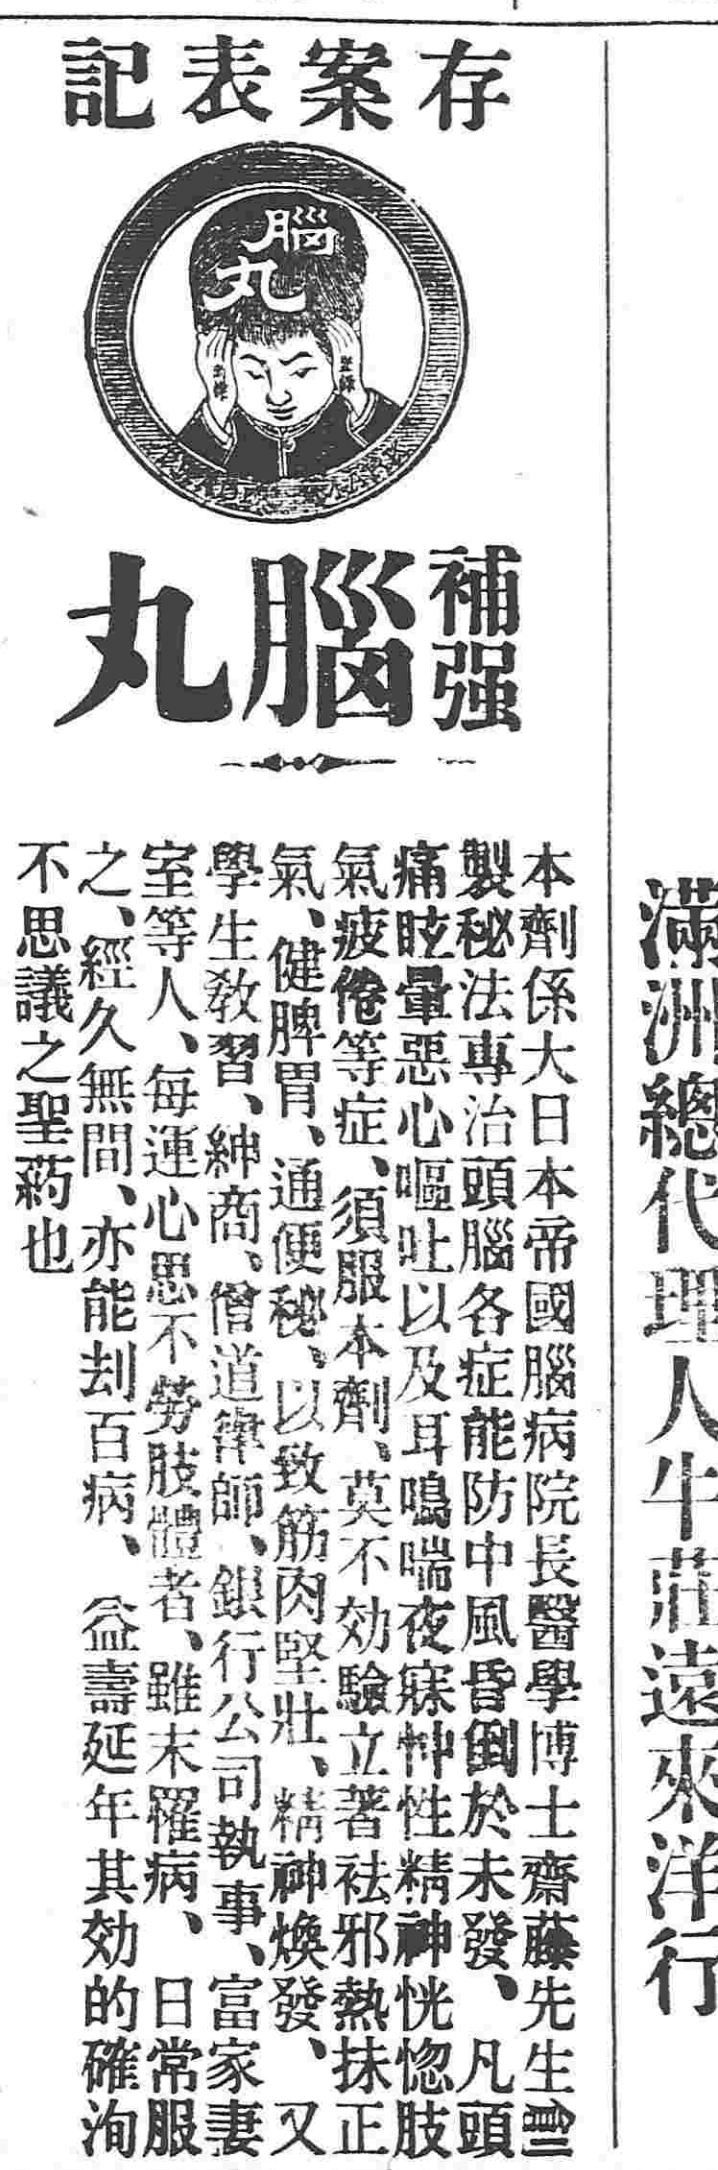 滿洲總代理人牛莊遠來洋行
存案表記
腦丸
登錄
補强
腦丸
本劑係大日本帝國腦病院長醫學博士齋藤先生
製秘法專治頭腦各症能防中風昏倒於未發、凡頭
痛眩暈惡心嘔吐以及耳鳴喘夜寐忡性精神恍惚肢
氣疲倦等症、須服本劑、莫不効驗立著袪邪熱抹正
氣、健脾胃、通便秘、以致筋肉堅壯、精神煥發、又
學生敎習、紳商、僧道律師、銀行公司執事、富家妻
室等人、每運心思不勞肢體者、雖末罹病、日常服
之、經久無間、亦能刦百病、益壽延年其効的確洵
不思議之聖葯也